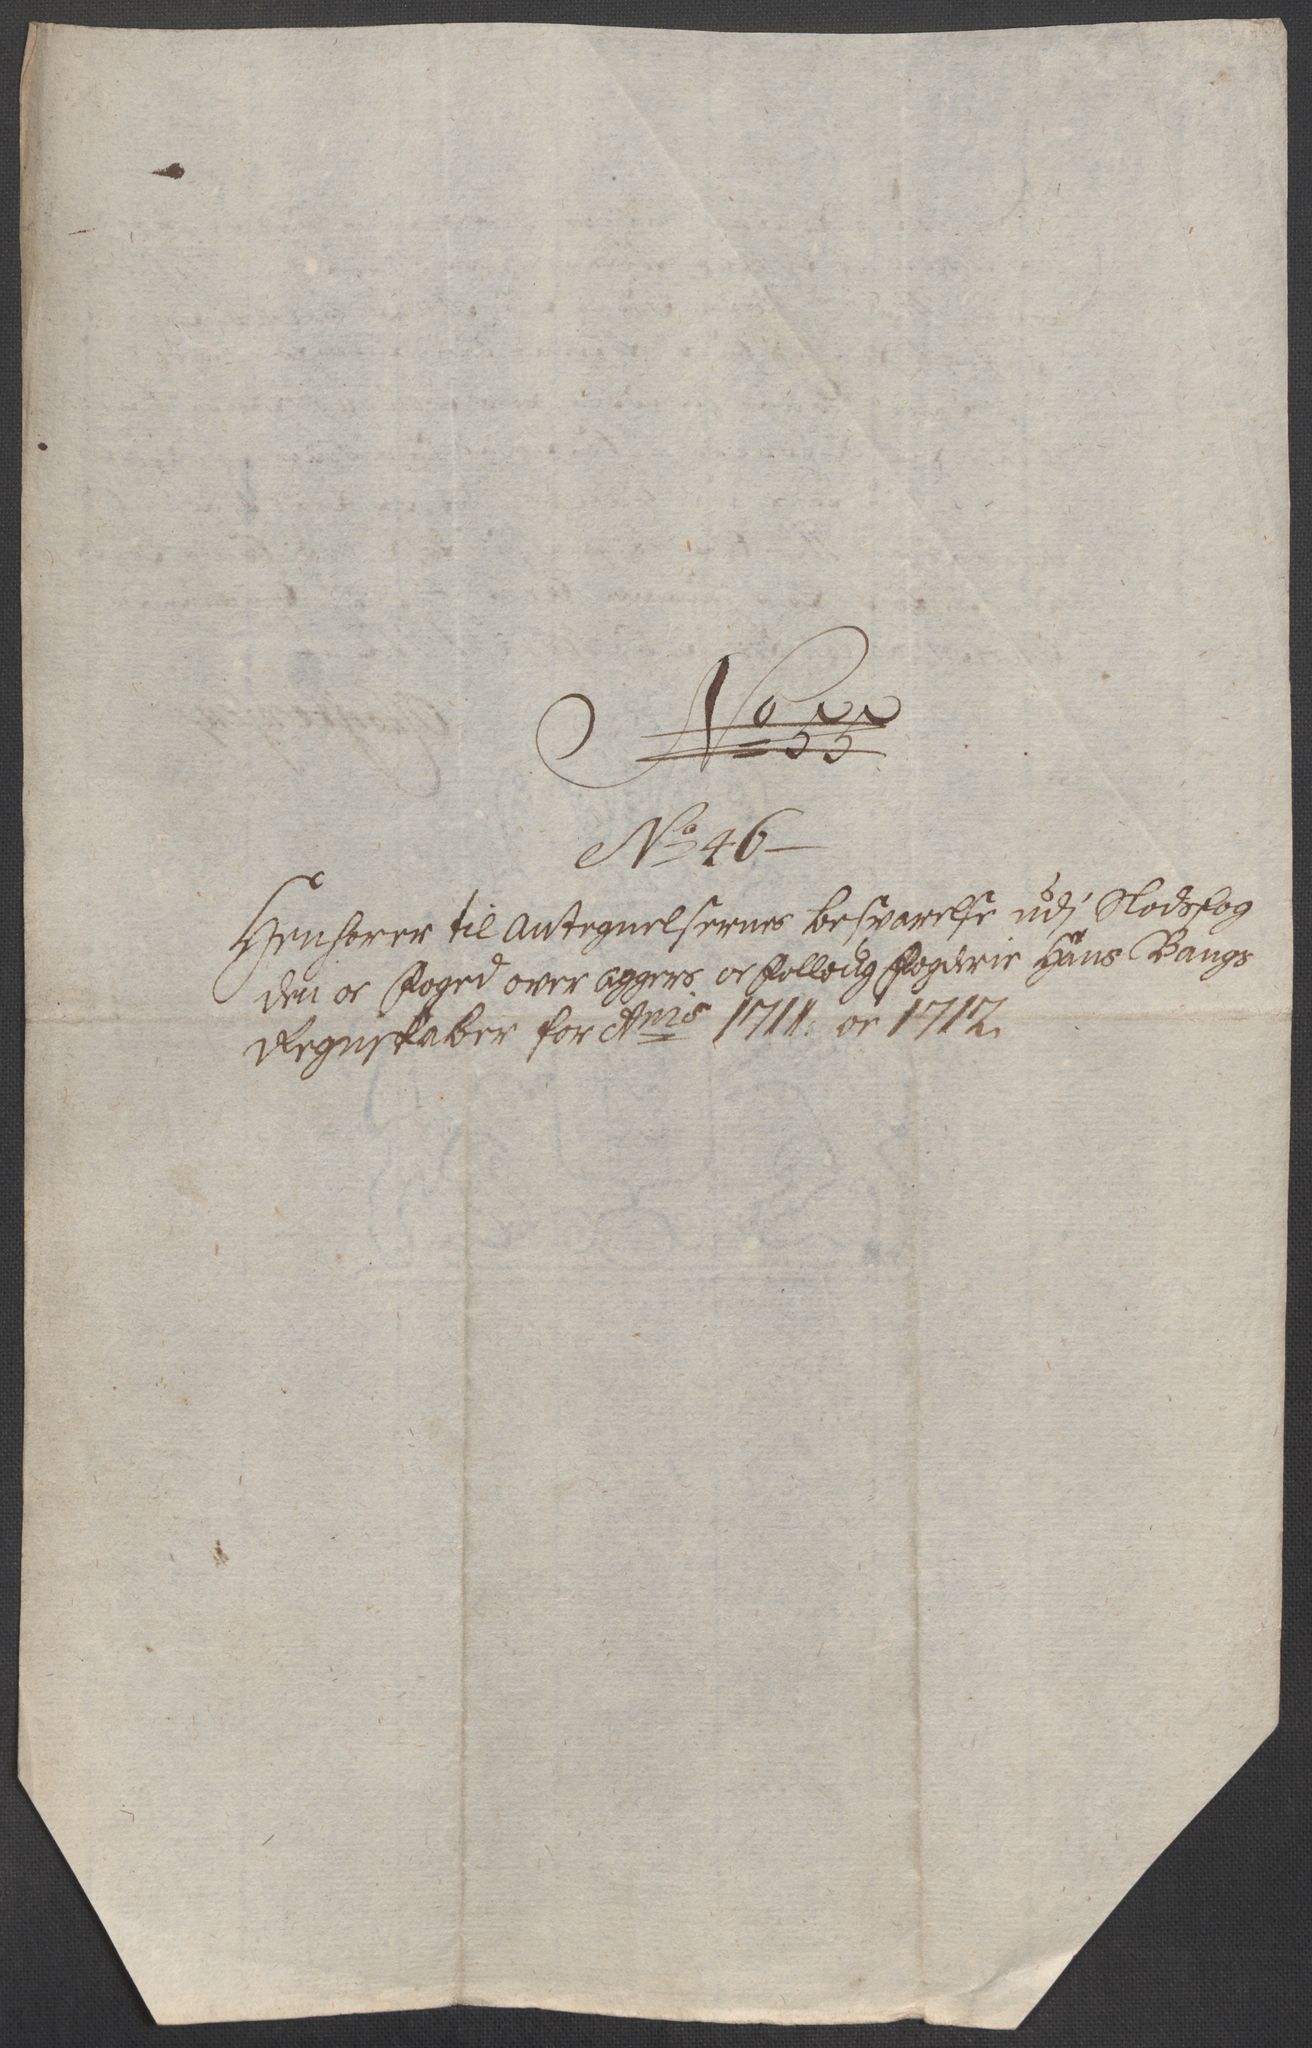 No 55
No 46
Henhører til Antegnelsernes besvarelse udj Slodsfog
den oc foged over aggers oc folloug fogderie Hans Bangs
Regnskaber for Anis 1711. oc 1712.